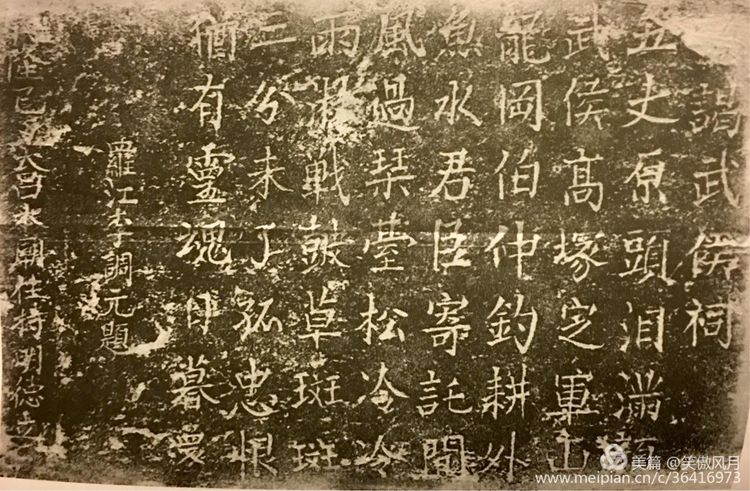 謁武侯祠
五丈原頭泪滿
武侯高塚定軍山
龍岡伯仲釣耕外
魚水君臣寄託間
風過琹臺松冷冷
雨淋戰鼓草斑斑
三分未了孤忠恨
猶有靈魂日暮還
羅江李調元題
隆己本廟住持明德立
美篇 @笑傲风月
www.meipian.cn/c/36416973